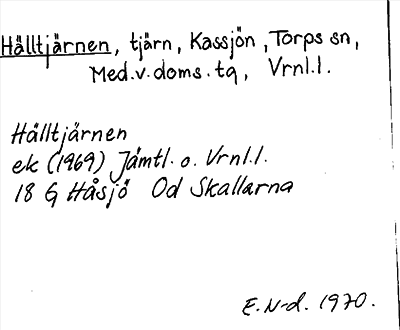 Hälltjärnen, tjärn, Kassjön, Torps sn,
Med.v.doms.tg, Vrnl.l.
Hälltjärnen
ek (1969) Jämtl. o. Vrnl.l.
18 G Håsjö Od Skallarna
E. N-d. 1970.